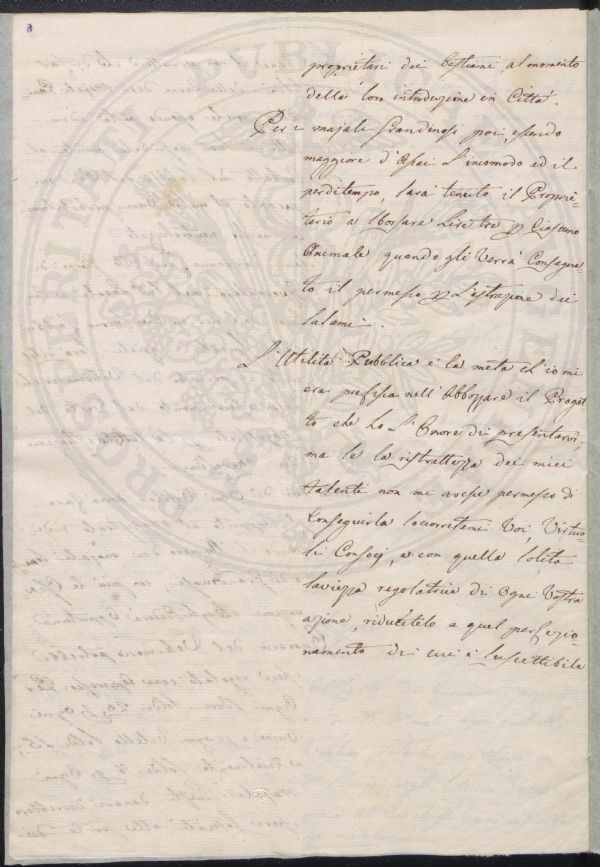 proprietari dei bestiami, al momento
della loro introduzione in Città.
Per i majali Grandinosi poi, essendo
maggiore d'assai l'incomodo ed il
perditempo, sarà tenuto il Proprie-
tario a sborsare Lire tre p Ciascuno
Animale quando gli verrà Consegna-
to il permesso p l'estrazione dei
salami.
L'Utilità Pubblica è la meta ch'io mi
era prefissa nell'Abbozzare il Proget
to che ho l'Onore di presentarvi,
ma se la ristrettezza dei miei
talenti non mi avesse permesso di
Conseguirla socorretemi Voi, Virtuo-
si Consocj, e con quella solita
saviezza regolatrice di ogni Vostra
azione, riducetelo a quel perfezio-
namento di cui è suscettibile